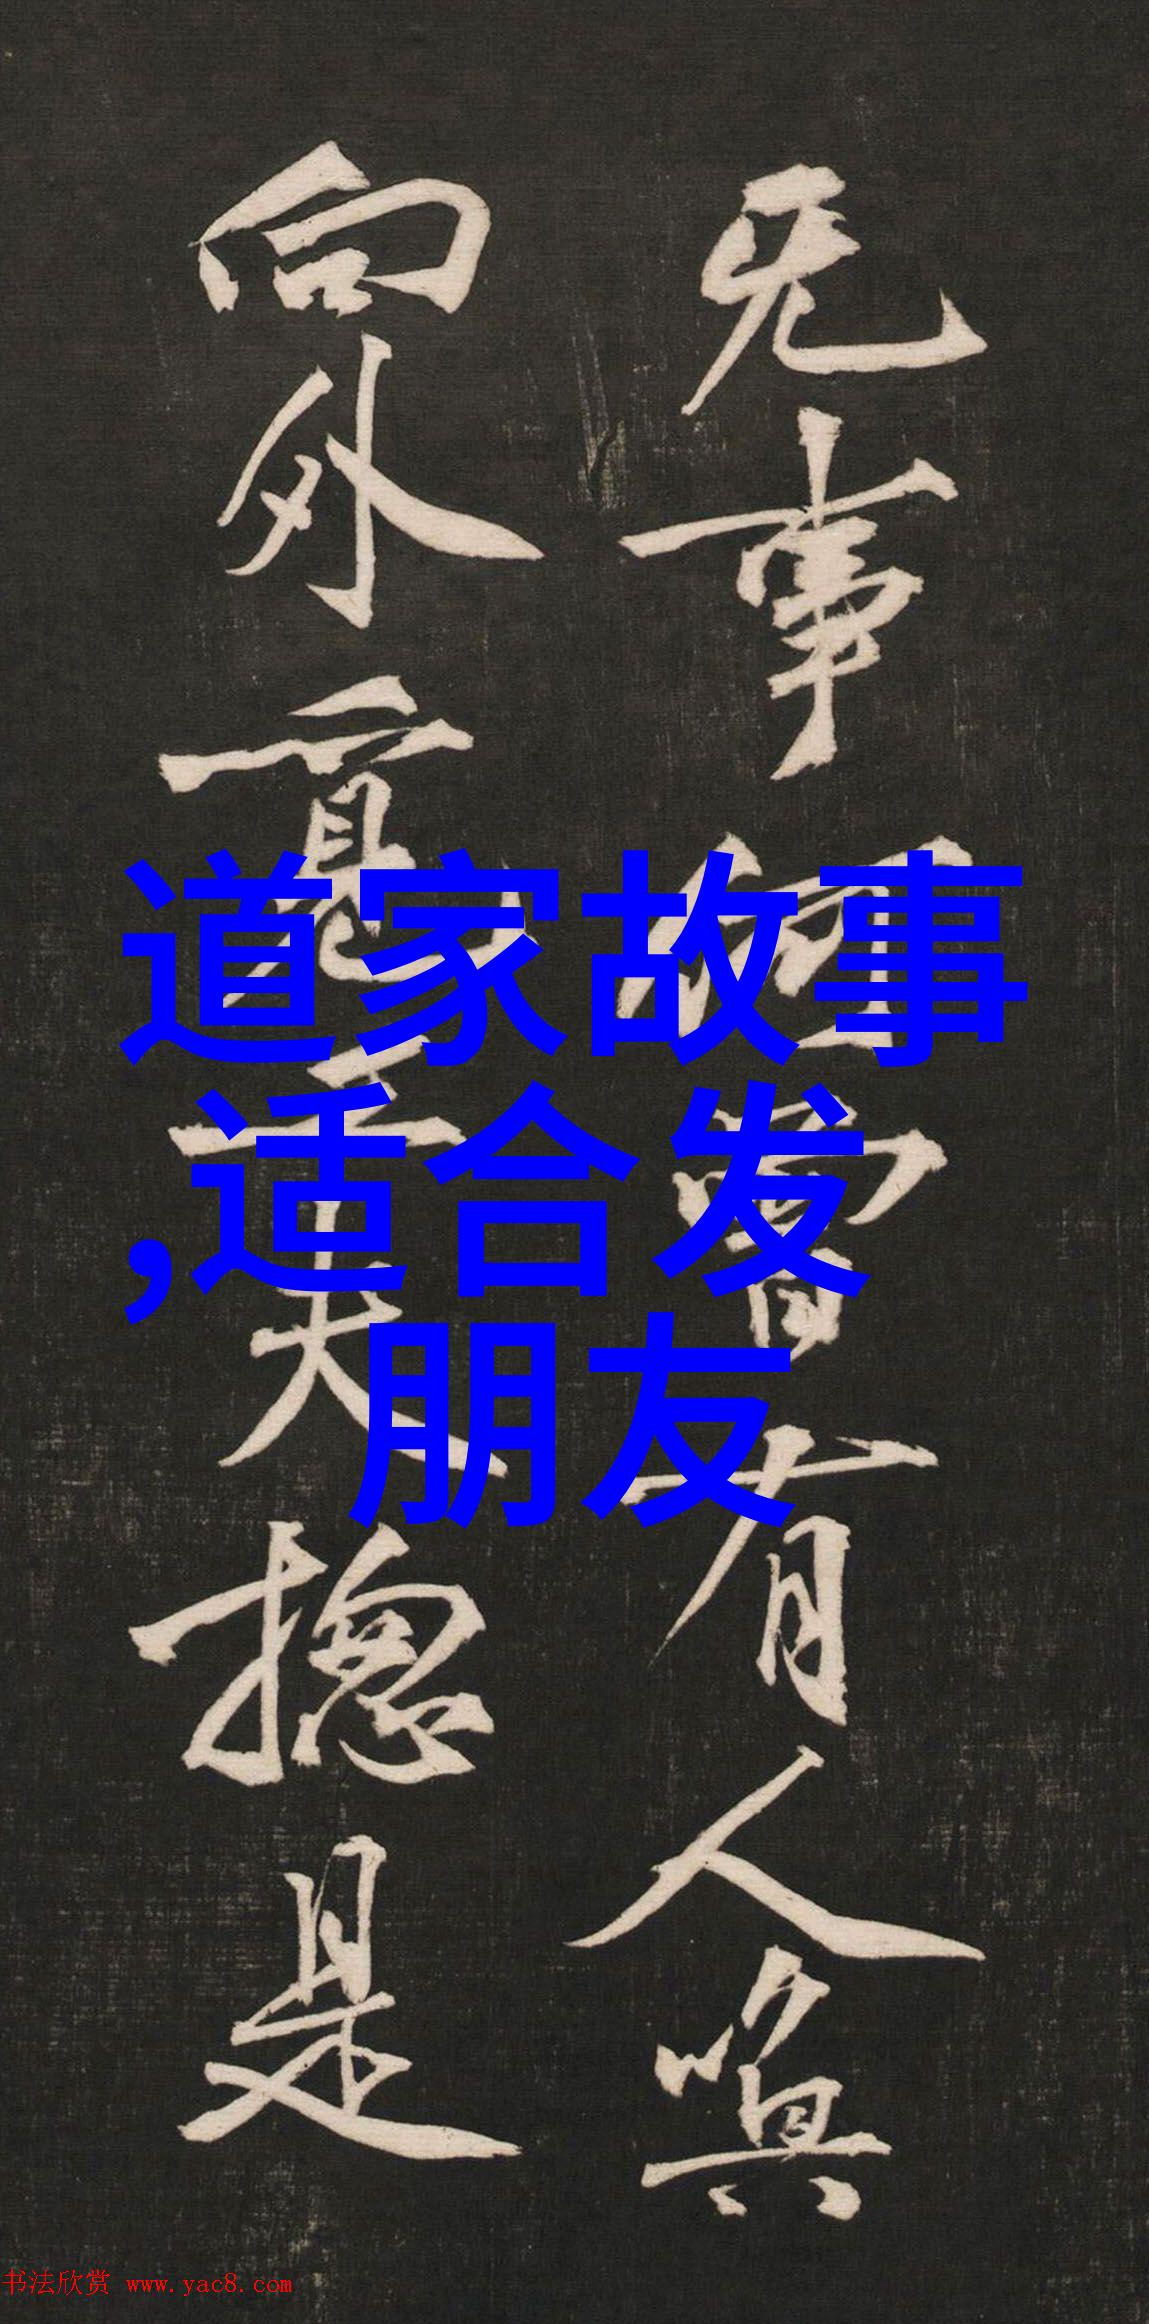 无事何曾有人唤
向外觅工夫揔是
道家故事
,适合发
朋友
书法欣赏 www.yac8.com